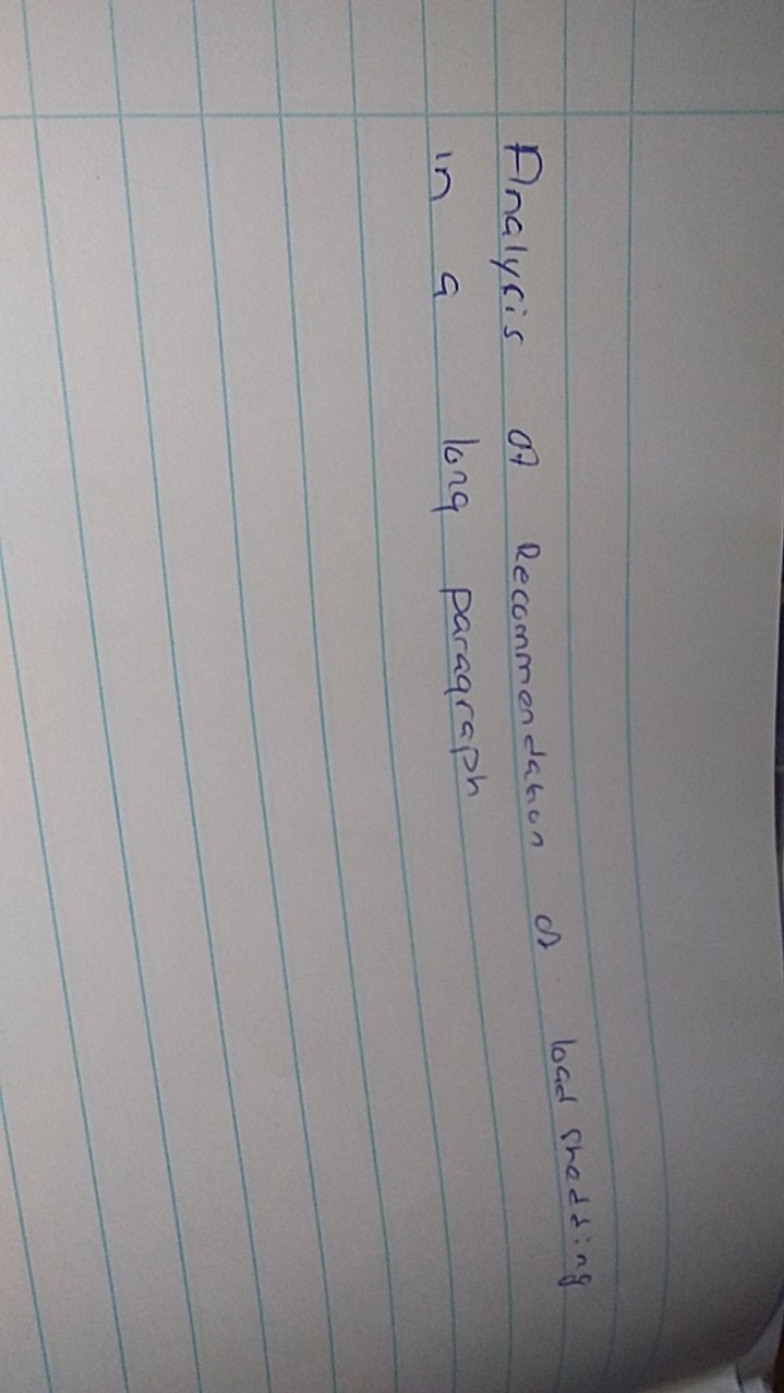 Analysis of Recommendation of load shedding
in a long paragraph